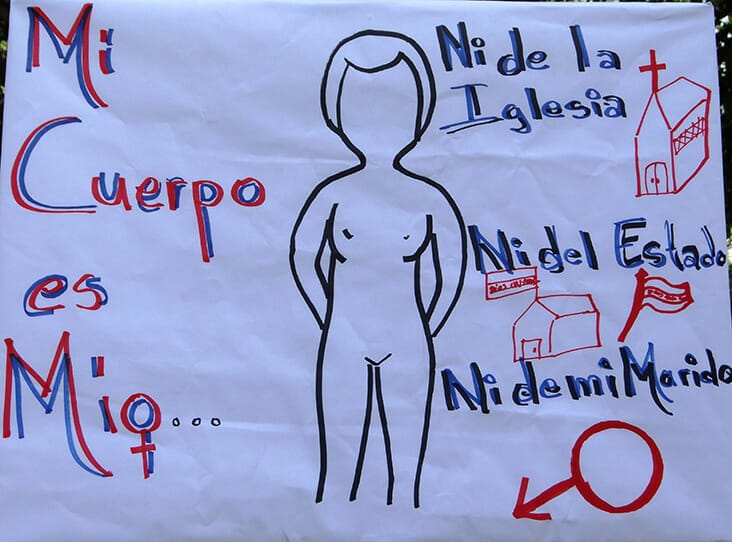 Mi
Cuerpo
es
Mio...
Ni de la
Iglesia
Ni del Estado
Ni de mi Marido